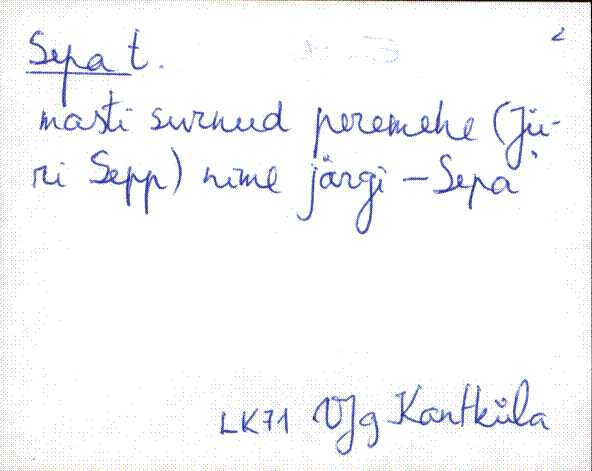 2
Sepa t.
masti surnud peremehe (Jü-
ri Sepp) nime järgi – Sepa`
LK71 VJg Kantküla